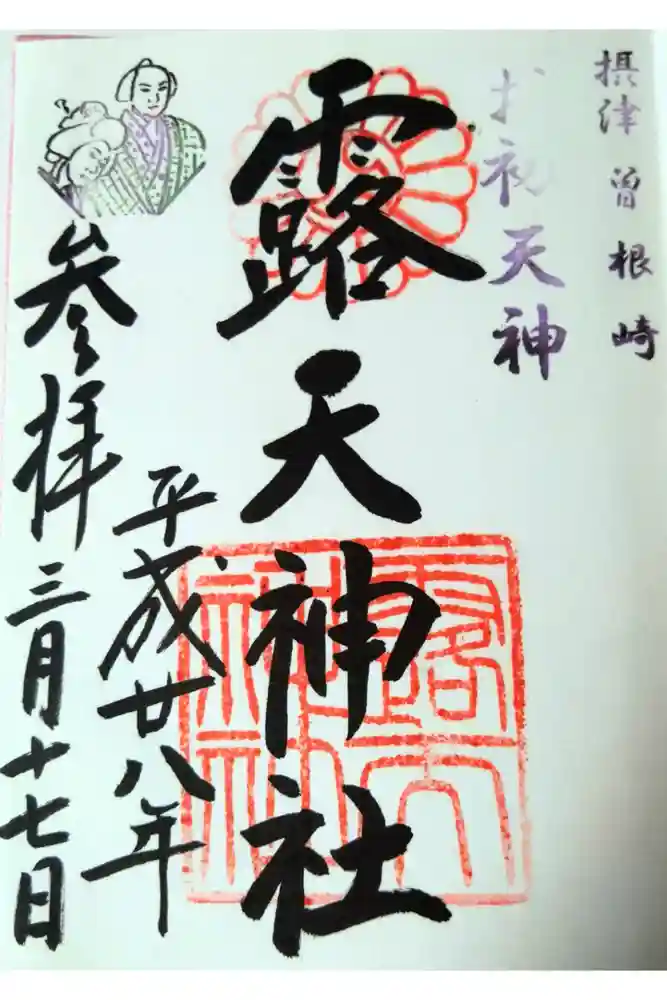 摂津 曽根崎
お初天神
露天神社
平成廿八年
三月十七日
参拝